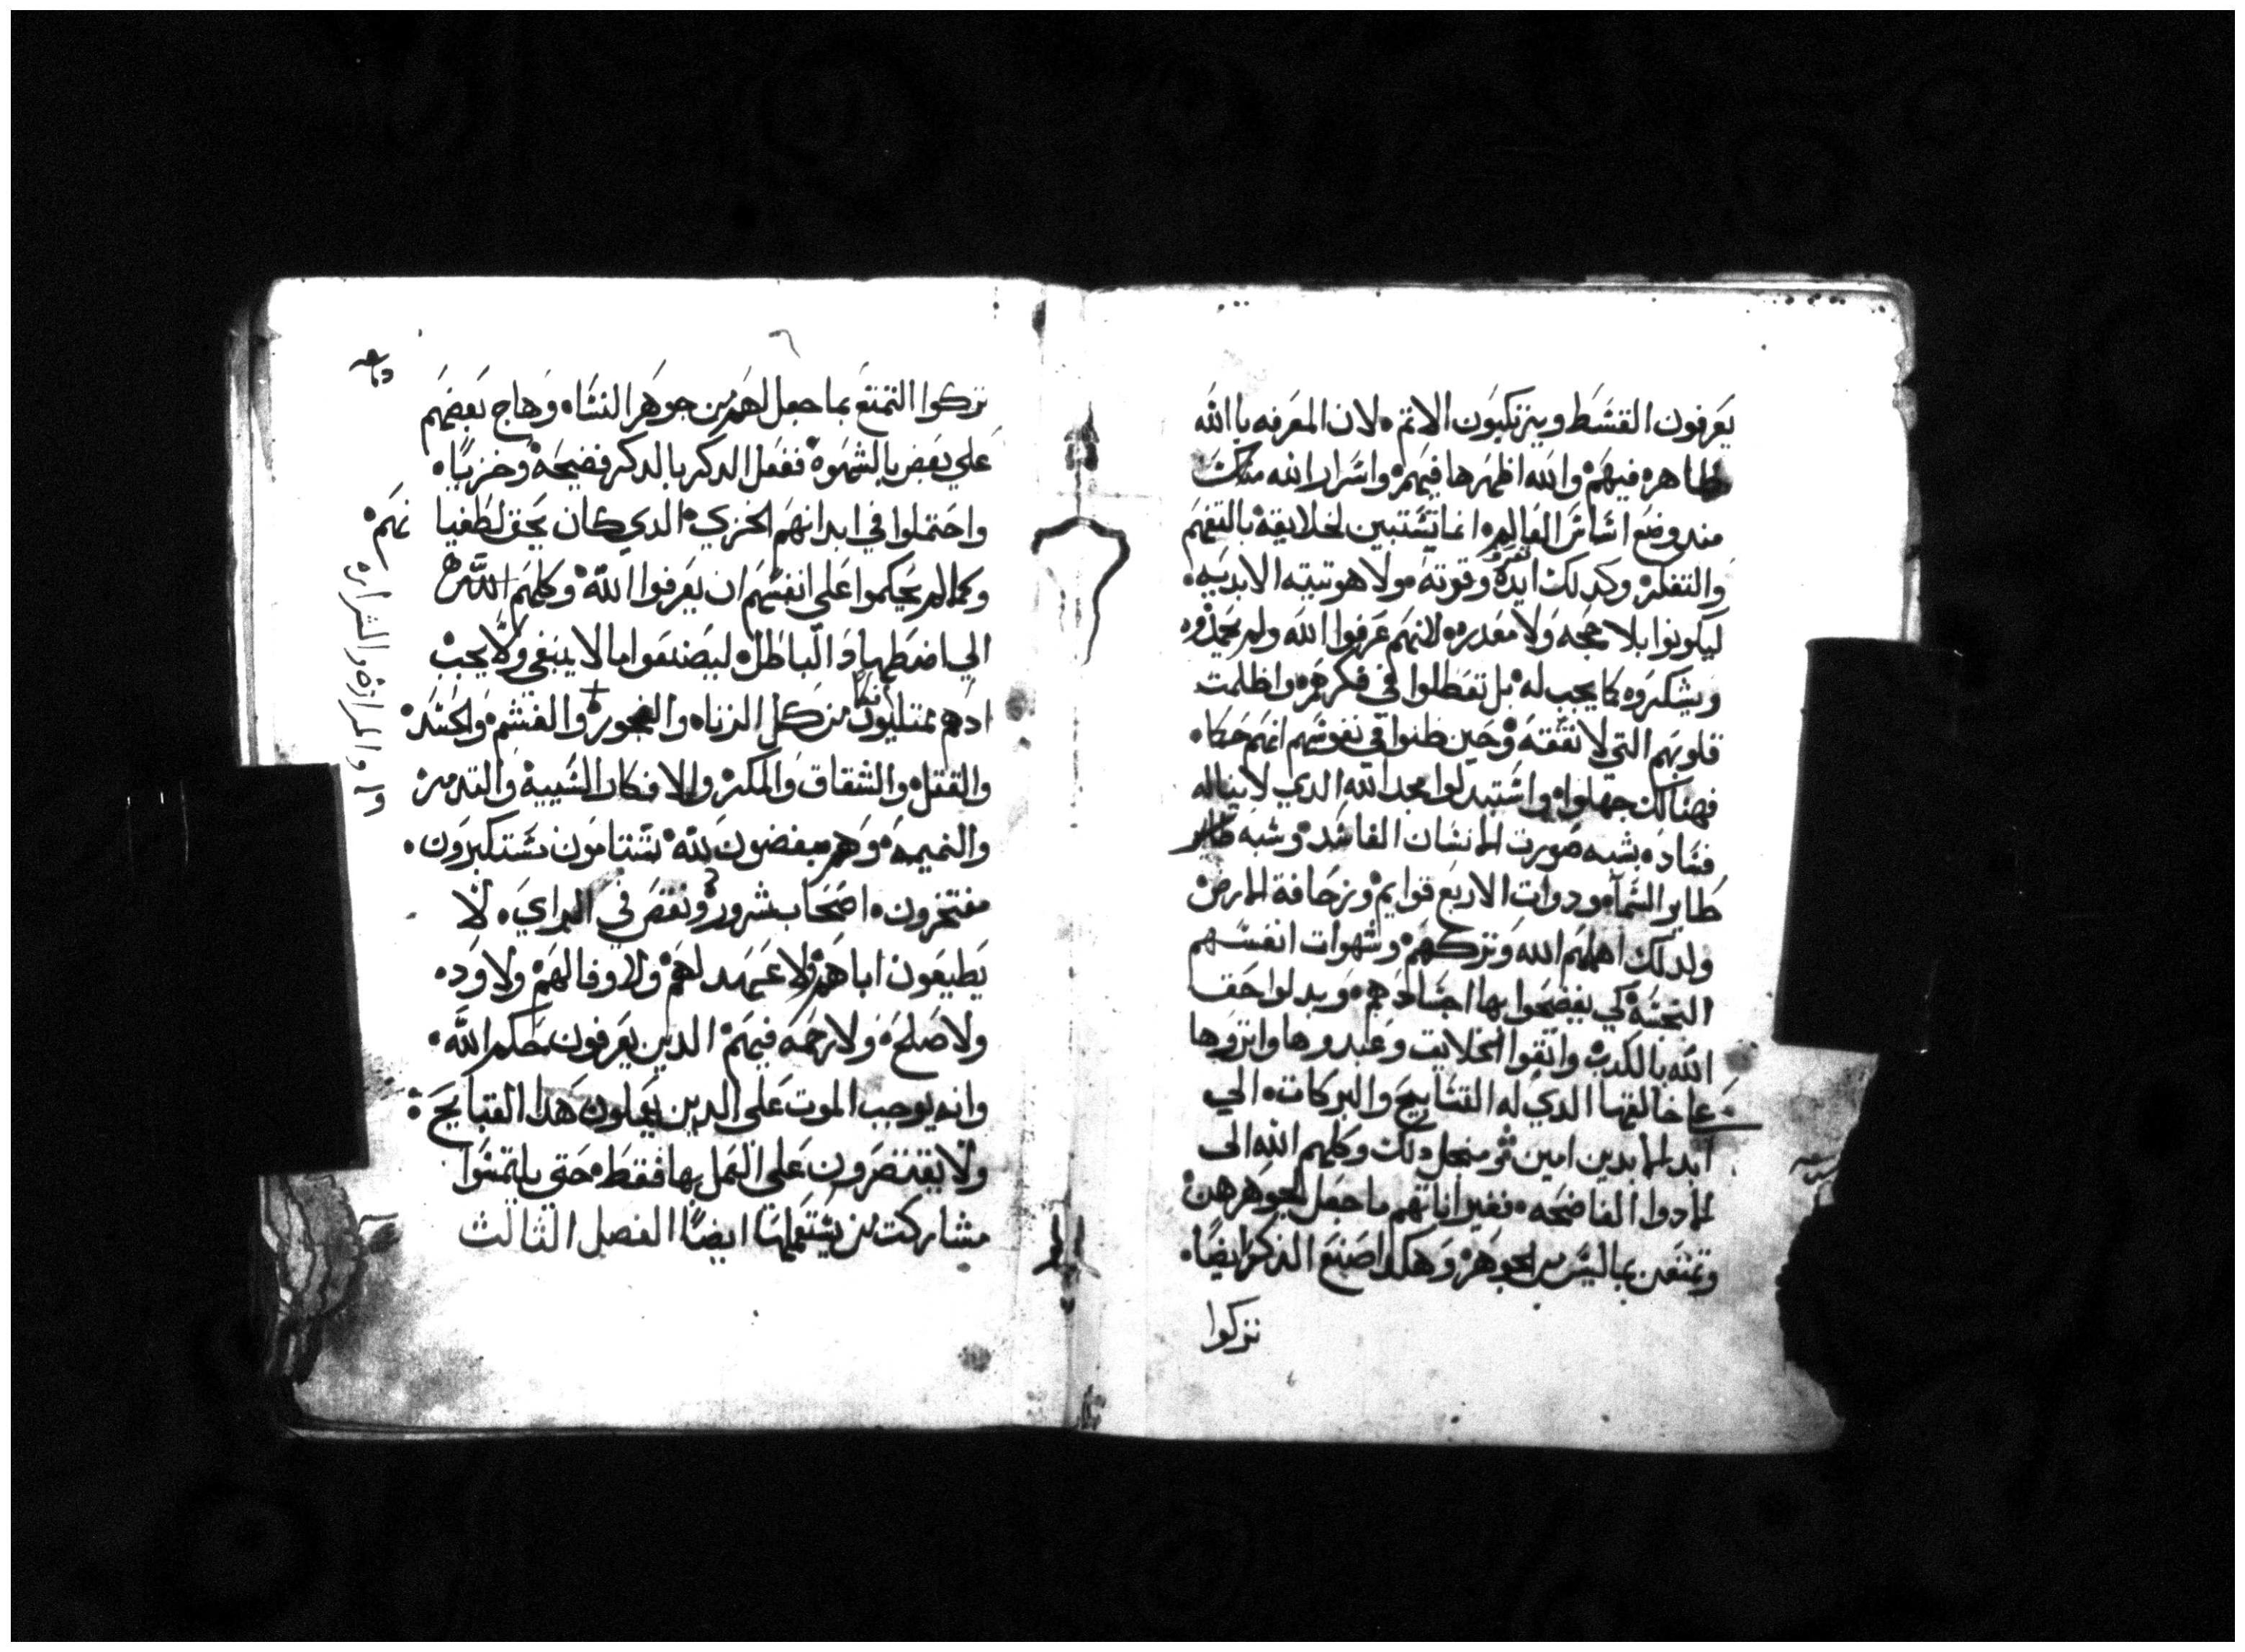 يعرفون القسط ويرتكبون الاثم لان المعرفه بالله
ظاهره فيهم والله اظهرها فيهم واسرار الله
مند وضع اساس العالم انما تستبين لخلايقه بالتفهم
والتفكر وكدلك ايده وقوته ولاهوتيته الابديه
ليكونوا بلا حجه ولا معدره لانهم عرفوا الله ولم يحمدوه
ويشكروه كما يجب له بل تعطلوا في فكرهم واظلمت
قلوبهم التي لا تفقه وحين ظنوا في نفوسهم انهم حكما
فهنالك جهلوا واستبدلوا مجد الله الدي لا يناله
فساده بشبه صورت الانسان الفاسد وشبه
طاير السما ودوات الاربع قوايم وزحافة الارض
ولدلك اهملهم الله وتركهم وشهوات انفسهم
النجسه كي يفضحوا بها اجسادهم وبدلوا حق
الله بالكدب واتقوا الخلايق وعبدوها واثروها
علي خالقها الدي له التسابيح والبركات الي
ابد الابدين امين ثم منجل دلك وكلهم الله الى
الادوا الفاضحه فغير اناثهم ما جعل لجوهرهن
وتمتعن بما ليس من الجوهر وهكدا صنع الدكر ايضا
تركوا
تركوا التمتع بما جعل لهم من جوهر النساه وهاج بعضهم
علي بعض بالشهوه ففعل الدكر بالدكر فضيحه وخزيا
واحتملوا في ابدانهم الخزي الدي كان يحق لطغيا نهم
وكما لم يحكموا على انفسهم ان يعرفوا الله وكلهم الله
الي اضطهاد الباطل ليصنعوا ما لا ينبغي ولا يجب
ادهم ممتليون من كل الزناه والفجور والغشم والحسد
والقتل والشقاق والمكر والافكار السييه والتدمر
والنميمه وهم مبغضون لله شتامون مستكبرون
مفتخرون اصحاب شرور ونقص في الراي لا
يطيعون اباهم ولا عهد لهم ولا وفا لهم ولا ود
ولا صلح ولا رحمه فيهم الدين يعرفون حكم الله
وانه يوجب الموت على الدين يعملون هدا القبايح
ولا يقتصرون على العمل بها فقط حتي يلتمسوا
مشاركت من يستعملها ايضا الفصل الثالث